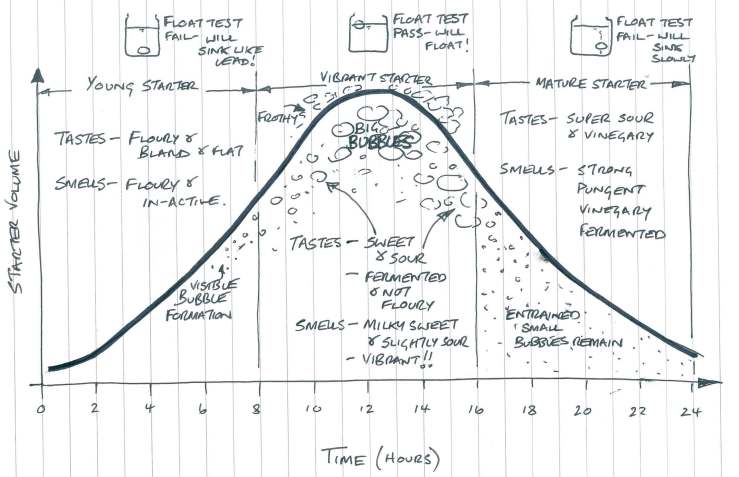 FLOAT TEST
FAIL - WILL
SINK LIKE
LEAD!
FLOAT TEST
PASS - WILL
FLOAT!
FLOAT TEST
FAIL - WILL
SINK
SLOWLY
YOUNG STARTER
VIBRANT STARTER
MATURE STARTER
FROTHY
BIG
BUBBLES
TASTES - FLOURY &
BLAND & FLAT
SMELLS - FLOURY &
IN-ACTIVE.
TASTES - SUPER SOUR
& VINEGARY
SMELLS - STRONG
PUNGENT
VINEGARY
FERMENTED
TASTES - SWEET
& SOUR
- FERMENTED
& NOT
FLOURY
SMELLS - MILKY SWEET
& SLIGHTLY SOUR
- VIBRANT!!
VISIBLE
BUBBLE
FORMATION
ENTRAINED
SMALL
BUBBLES REMAIN
STARTER VOLUME
0 2 4 6 8 10 12 14 16 18 20 22 24
TIME (HOURS)